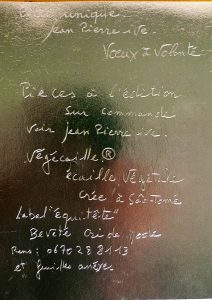 unique
Jean Pierre-ive.
Voeux à Volonté
Pièces à l'édition
Sur commande
Voir Jean Pierre-ive.
Végécaille®
écaille Végétale
Crée à Sao-Tomé
Label "équi-tête"
Bevete
Rens: 0670288113
et feuilles annexes